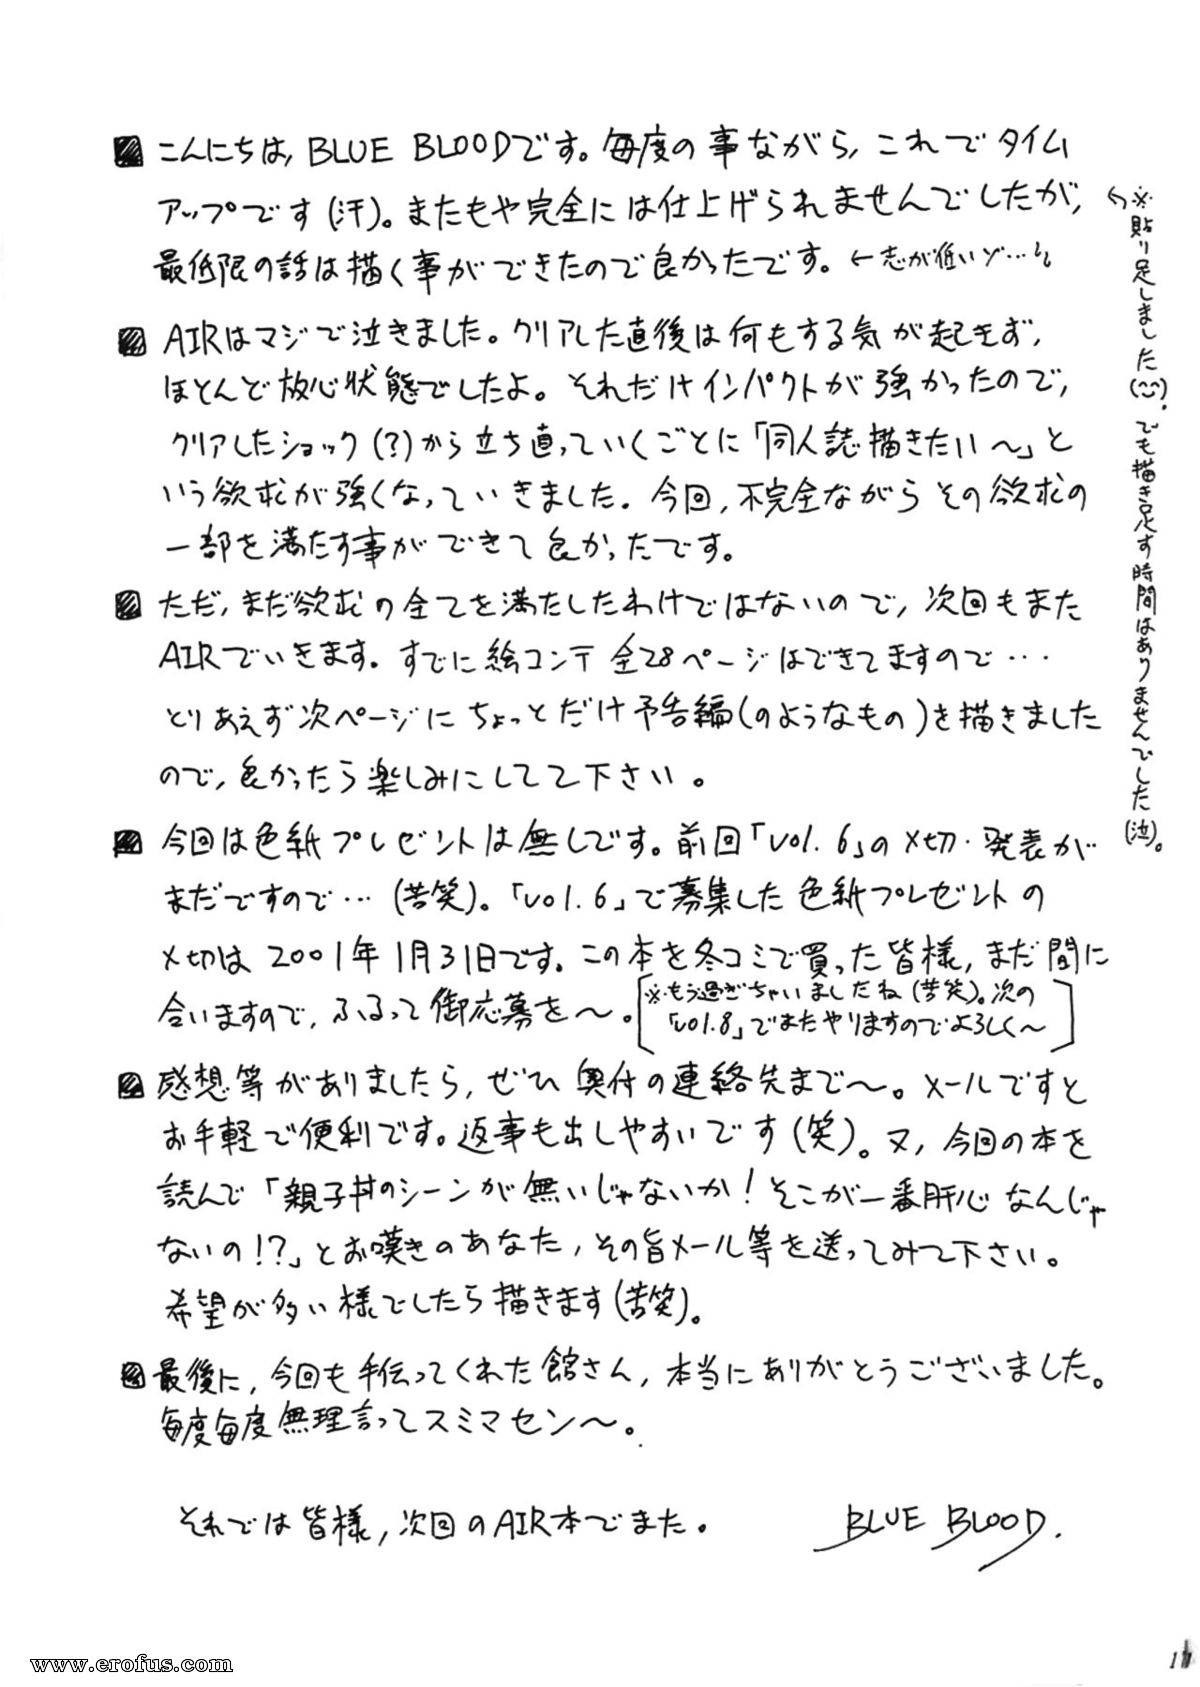 こんにちは, BLUE BLOODです。毎度の事ながら, これでタイム
アップです(汗)。またもや完全には仕上げられませんでしたが,
最低限の話は描く事ができたので良かったです。←志が低いゾ…
AIRはマジで泣きました。クリアした直後は何もする気が起きず,
ほとんど放心状態でしたよ。それだけインパクトが強かったので,
クリアしたショック(?)から立ち直っていくごとに「同人誌描きたい〜」と
いう欲求が強くなっていきました。今回, 不完全ながらその欲求の
一部を満たす事ができて良かったです。
ただ, まだ欲求の全てを満たしたわけではないので, 次回もまた
AIRでいきます。すでに絵コンテ全28ページはできてますので…
とりあえず次ページにちょっとだけ予告編(のようなもの)を描きました
ので, 良かったら楽しみにしてて下さい。
今回は色紙プレゼントは無しです。前回「vol.6」の〆切・発表が
まだですので…(苦笑)。「vol.6」で募集した色紙プレゼントの
〆切は2001年1月31日です。この本を冬コミで買った皆様, まだ間に
合いますので, ふるって御応募を〜。
※もう過ぎちゃいましたね(苦笑)。次の
「vol.8」でまたやりますのでよろしく〜
感想等がありましたら, ぜひ奥付の連絡先まで〜。メールですと
お手軽で便利です。返事も出しやすいです(笑)。又, 今回の本を
読んで「親子丼のシーンが無いじゃないか!そこが一番肝心なんじゃ
ないの!?」とお嘆きのあなた, その旨メール等を送ってみて下さい。
希望が多い様でしたら描きます(苦笑)。
最後に, 今回も手伝ってくれた館さん, 本当にありがとうございました。
毎度毎度無理言ってスミマセン〜。
それでは皆様, 次回のAIR本でまた。
BLUE BLOOD.
※貼り足しました(^^)。でも描き足す時間はありませんでした(泣)。
www.erofus.com